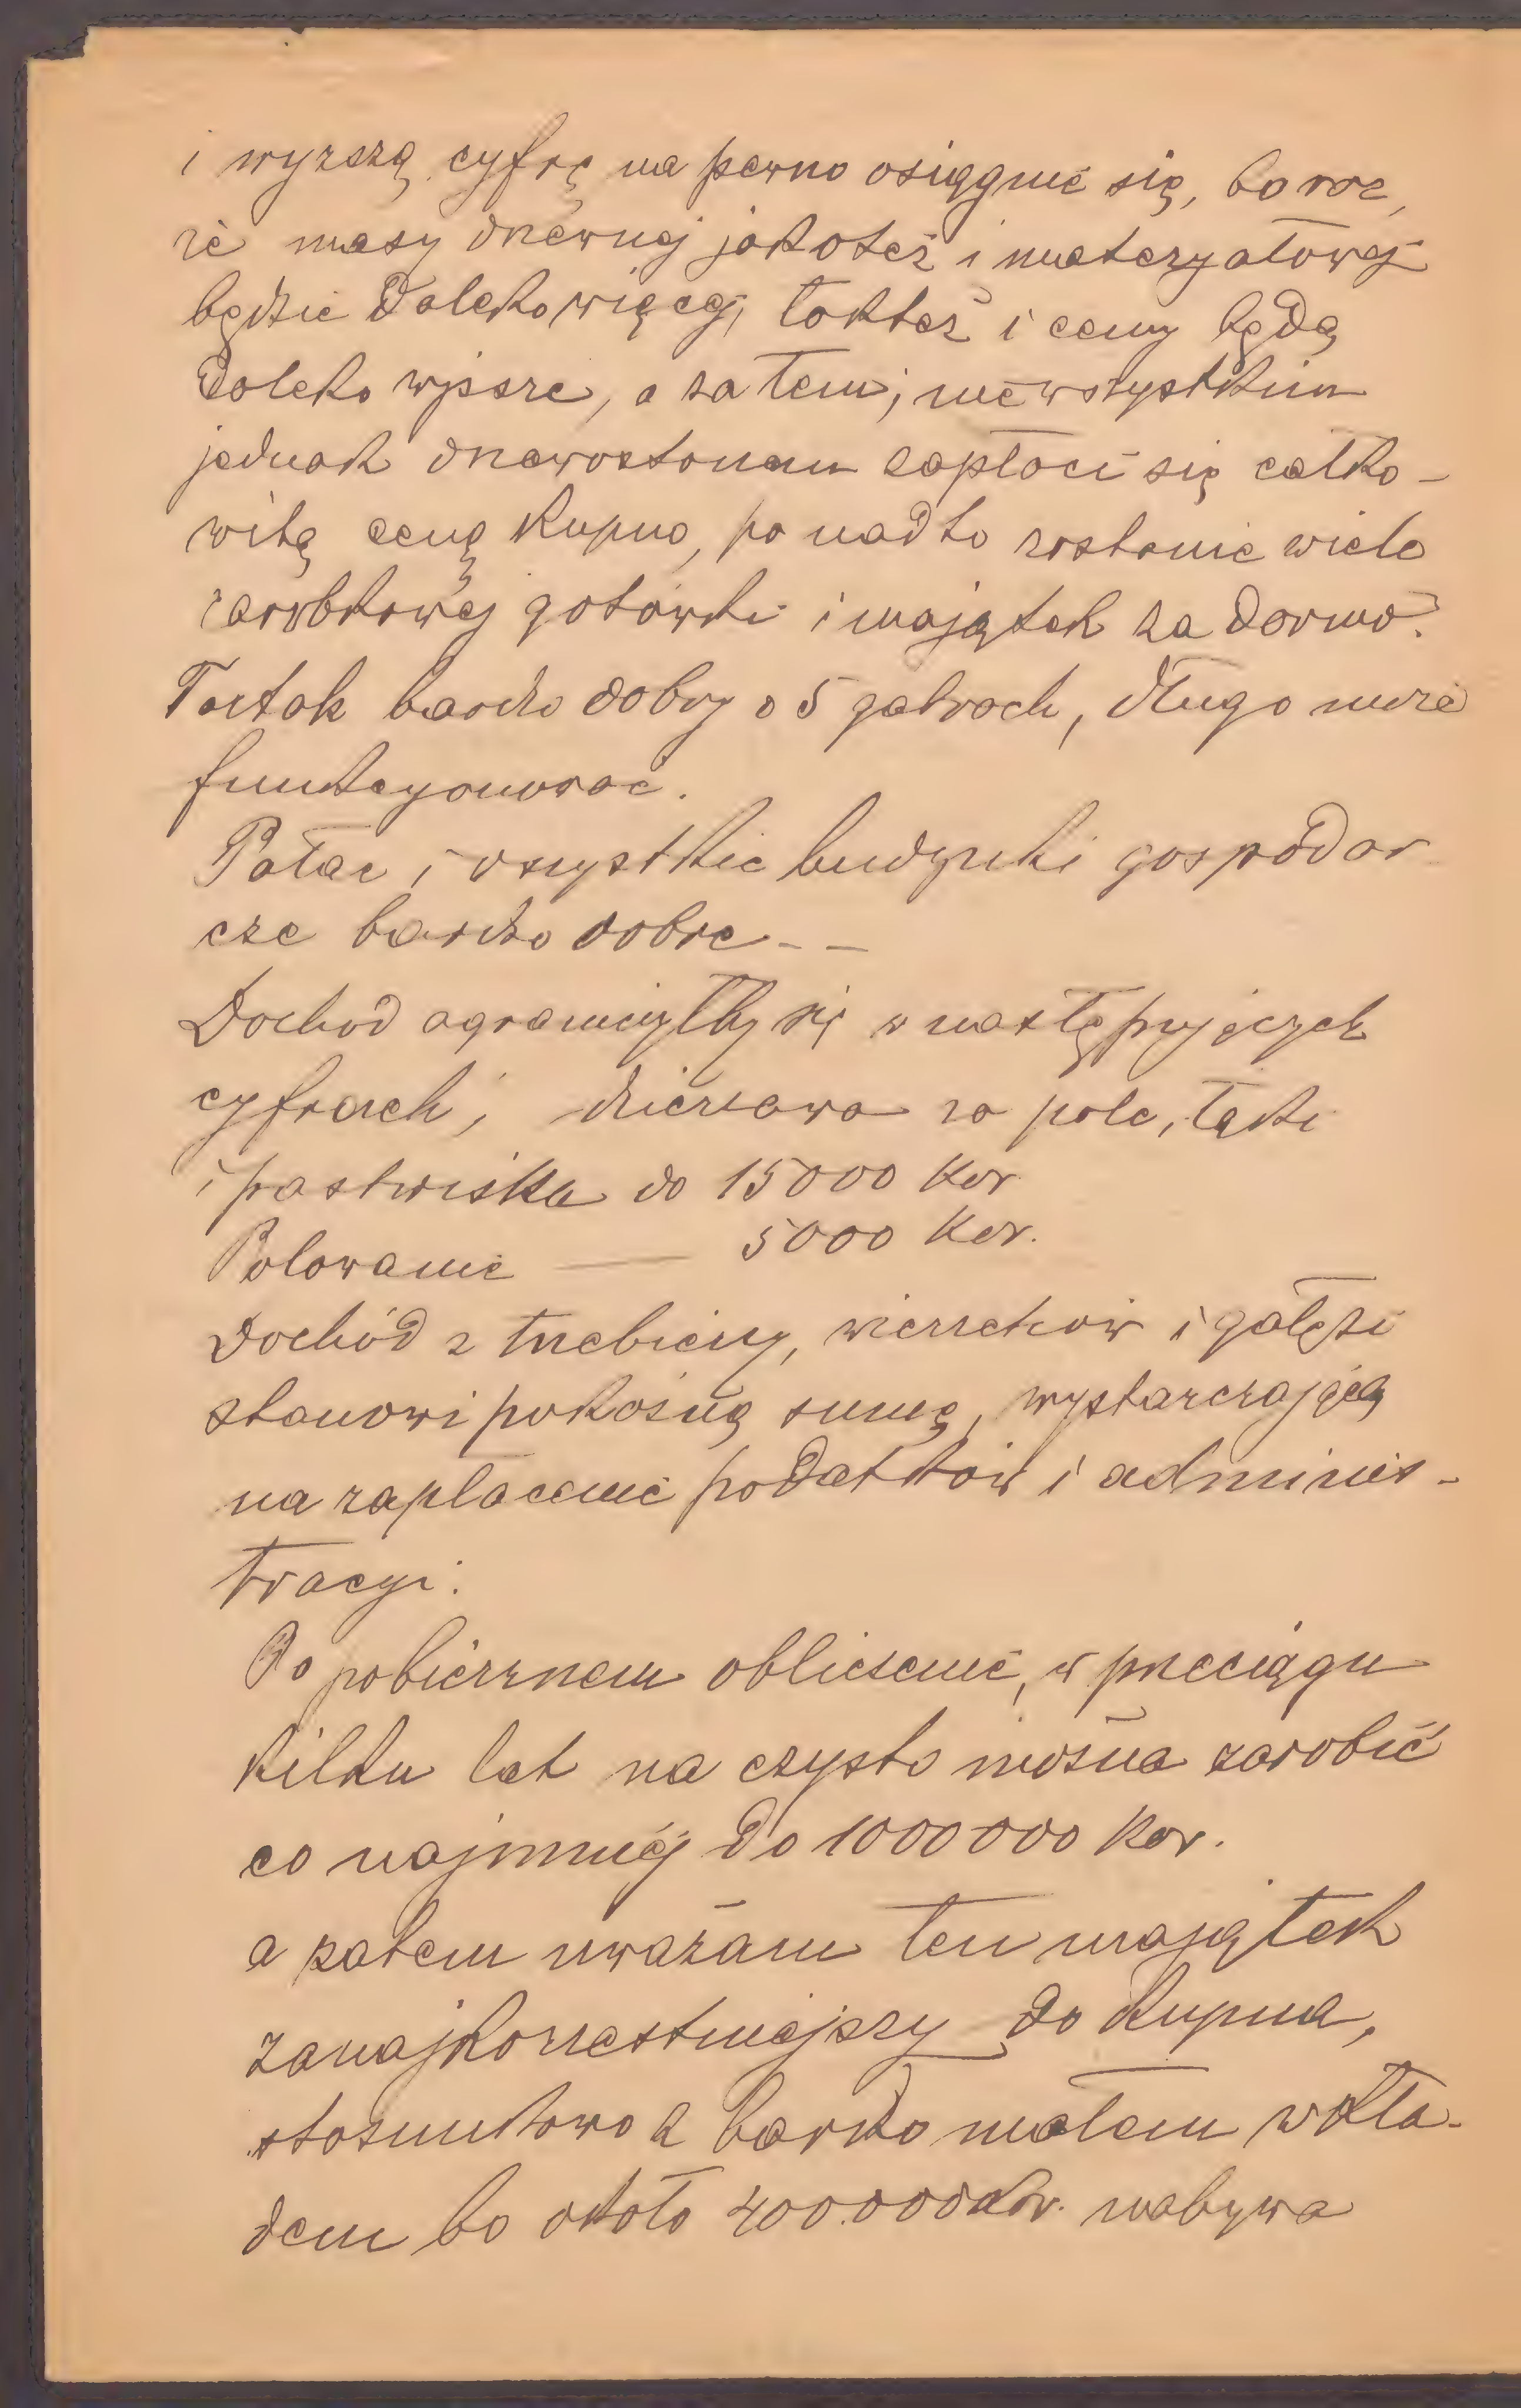 i wyższą cyfrę na pewno osiągnie się, bo raz,
że masy drzewnej jakoteż i materyałowej
będzie daleko więcej, tokteż i ceny będą
daleko wyższe, a zatem; niewszystkim
jednak drzewostanem zapłaci się całko-
witą cenę kupna, po nadto zostanie wiele
zarobkowej gotówki i majątek za darmo.
Tartak bardzo dobry o 5 gatrach, długo może
funkcyonować.
Pałac i wszystkie budynki gospodar
cze bardzo dobre - -
Dochód ograniczyłby się w następujących
cyfrach; dzierżawa za pole, łąki
i pastwiska do 15000 Kor
Polowanie — 5000 Kor.
Dochód z trzebieży, wierzchów i gałęzi
stanowi pokaźną sumę, wystarczającą
na zapłacenie podatków i adminis-
tracyi.
Po pobieżnem obliczenie, w przeciągu
kilku lat na czysto można zarobić
co najmniej do 1000000 Kor.
a zatem uważam ten majątek
zanajkorzestniejszy do kupna,
stosunkowo z bardzo małem wkła-
dem bo około 400.000 Kor. nabywa